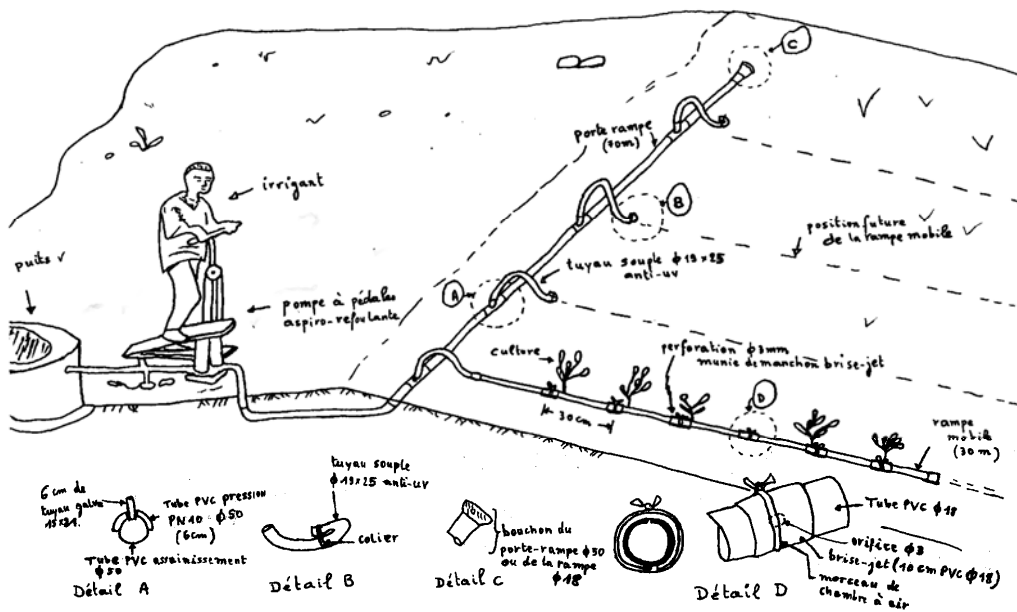 C
porte rampe
(70m)
irrigant
B
position future
de la rampe mobile
puits
tuyau souple φ19×25
anti-uv
A
pompe à pédales
aspiro-refoulante
culture
perforation φ3mm
munie de manchon brise-jet
30cm
D
rampe
mobile
(30 m)
6 cm de
tuyau galva
15×21.
Tube PVC pression
PN10 φ50
(6cm)
Tube PVC assainissement
φ50
Détail A
tuyau souple
φ19×25 anti-uv
colier
Détail B
bouchon du
porte-rampe φ50
ou de la rampe
φ18
Détail C
Tube PVC φ18
orifice φ3
brise-jet (10 cm PVC φ18)
morceau de
chambre à air
Détail D